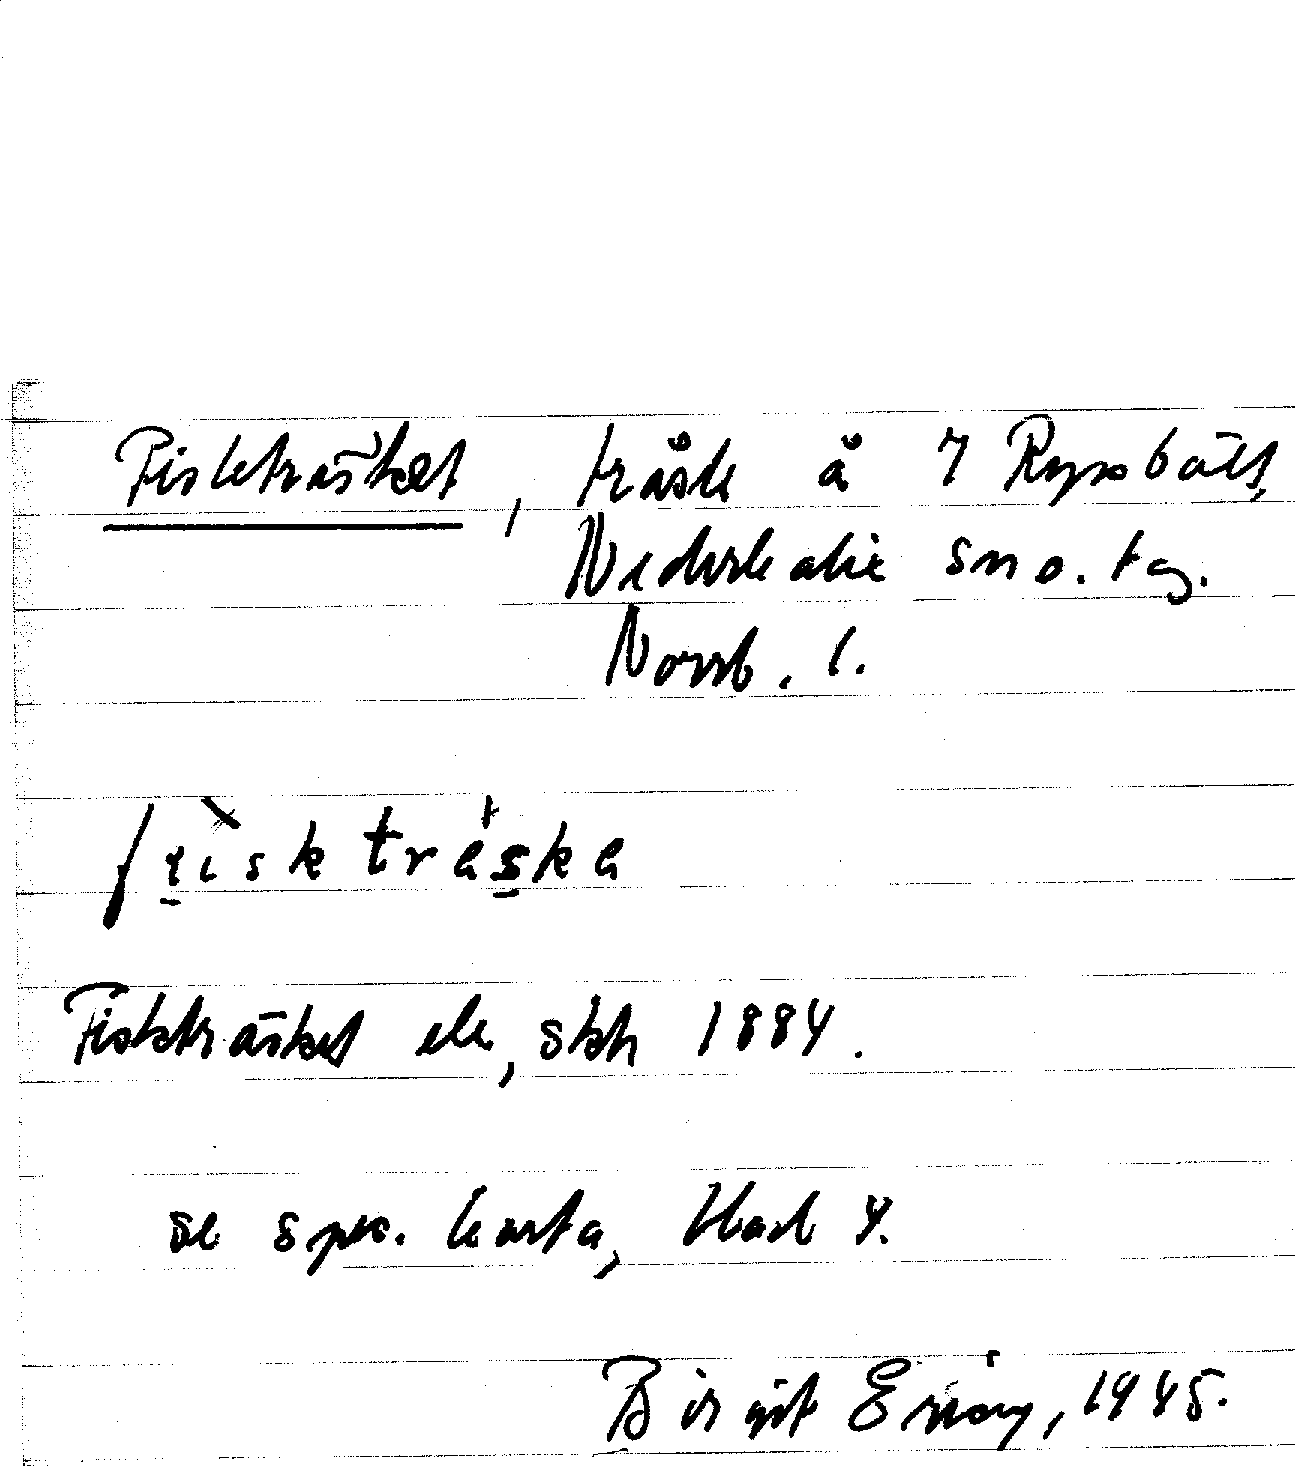 Fiskträsket, träsk å 7 Ryssbält,
Nederkalix sn o. tg.
Norrb. l.
Fiskträsket ek, skh 1884.
se spec. karta, blad 4.
Birgit Ernöy, 1945.